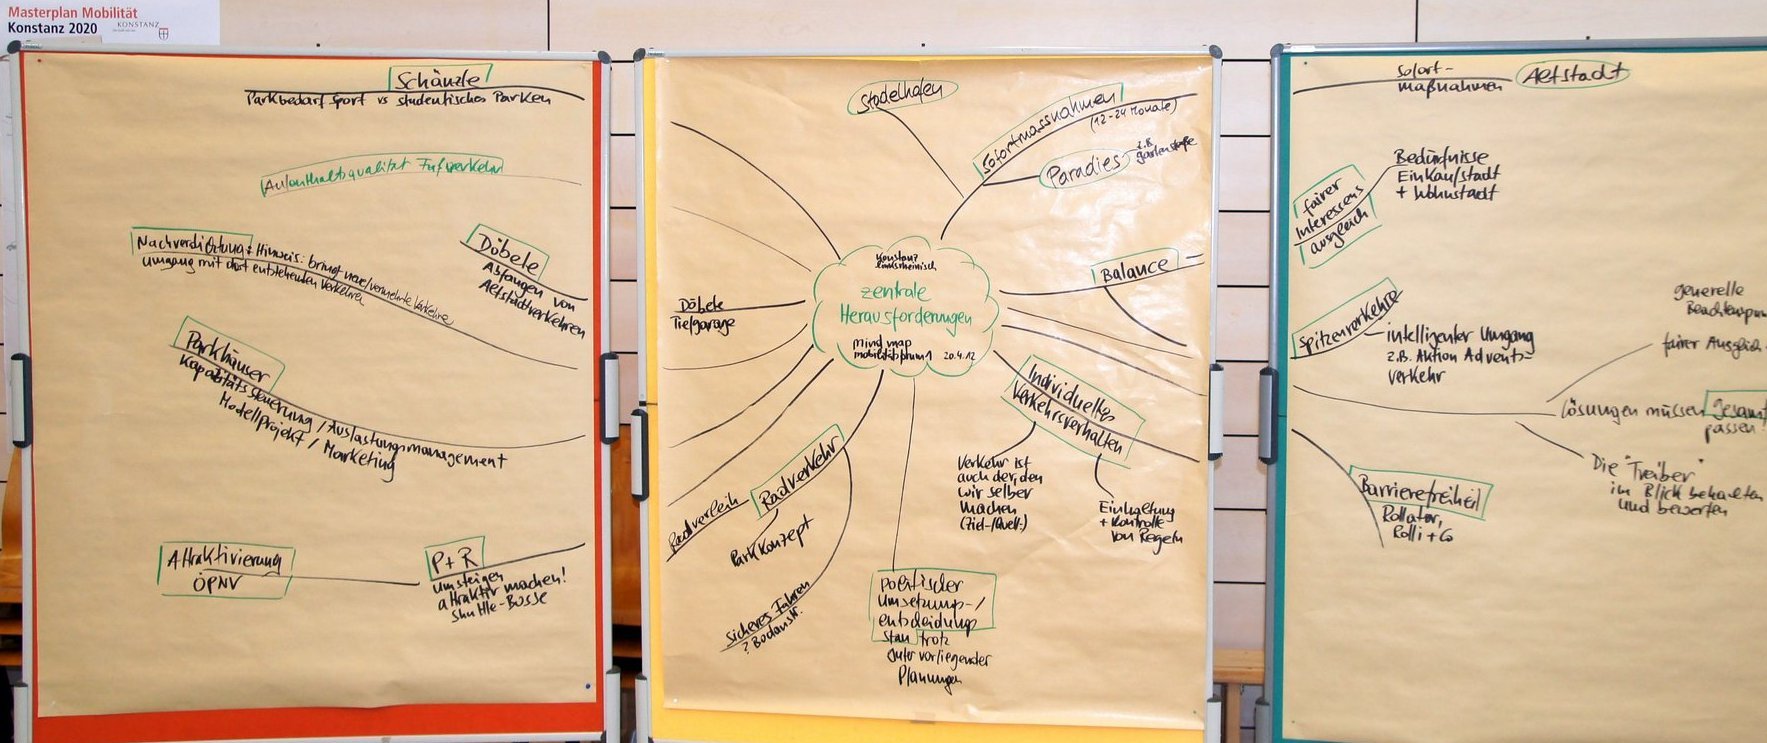 Masterplan Mobilität
Konstanz 2020
KONSTANZ
Schänzle
Parkbedarf Sport vs studentisches Parken
Aufenthaltsqualität Fußverkehr
Nachverdichtung: Hinweis: bringt neue/vermehrte Verkehre
Umgang mit dort entstehenden Verkehren
Döbele
Abfangen von
Altstadtverkehren
Parkhäuser
Kapazitätssteuerung / Auslastungsmanagement
Modellprojekt / Marketing
Attraktivierung
ÖPNV
P+R
Umsteigen
attraktiv machen!
Shuttle-Busse
Stadelhofen
Sofortmassnahmen
(12-24 Monate)
Paradies
z.B.
Gartenstraße
Konstanz
linksrheinisch
zentrale
Herausforderungen
mind map
20.4.12
Balance
Döbele
Tiefgarage
Individuelles
Verkehrsverhalten
Verkehr ist
auch der, den
wir selber
machen
(Ziel-/Quell-)
Einhaltung
+ Kontrolle
von Regeln
Radverkehr
Radverleih
Parkkonzept
Sicheres Fahren
? Bodanstr.
politischer
Umsetzungs-/
entscheidungs
stau trotz
guter vorliegender
Planungen
Sofort-
maßnahmen
Altstadt
fairer
Interessens
ausgleich
Bedürfnisse
Einkaufstadt
+ Wohnstadt
Spitzenverkehre
intelligenter Umgang
z.B. Aktion Advents-
verkehr
generelle
fairer Ausgleich
Lösungen müssen gesamt
passen
Die "Treiber"
im Blick behalten
und bewerten
Barrierefreiheit
Rollator,
Rolli + Co